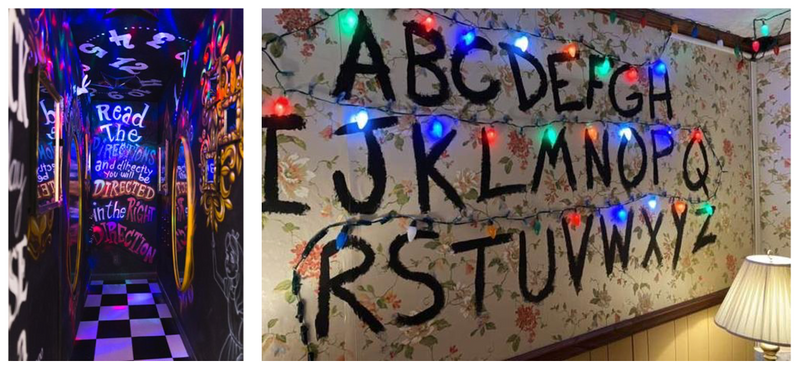 Read
The
DIRECTIONS
and directly
you will be
DIRECTED
in the RIGHT
DIRECTION
ABCDEFGH
IJKLMNOPQ
RSTUVWXYZ